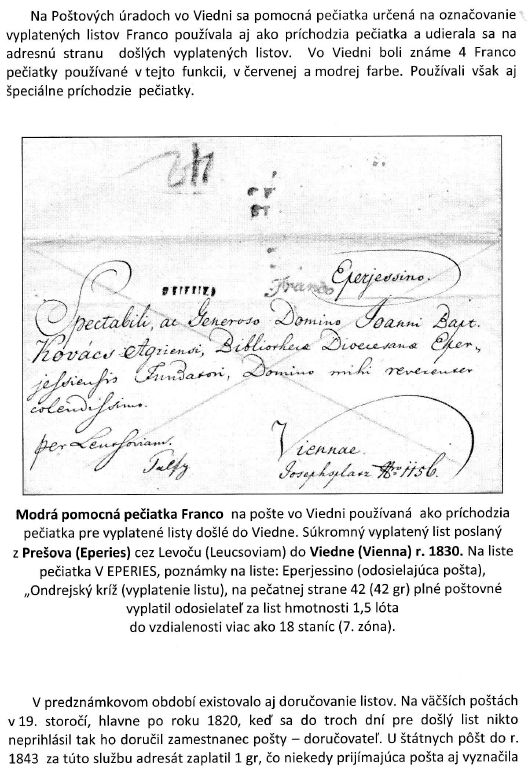 Na Poštových úradoch vo Viedni sa pomocná pečiatka určená na označovanie
vyplatených listov Franco používala aj ako príchodzia pečiatka a udierala sa na
adresnú stranu došlých vyplatených listov. Vo Viedni boli známe 4 Franco
pečiatky používané v tejto funkcii, v červenej a modrej farbe. Používali však aj
špeciálne príchodzie pečiatky.
42
Franco
Eperjessino.
Spectabili, ac Generoso Domino Joanni Bapt.
Kovács Agriensi, Bibliothecæ Dioecesanæ Eper-
jessiensis Fundatori, Domino mihi reverenter
colendissimo.
per Leutsoviam.
Viennae.
Josephsplatz No 1156.
Modrá pomocná pečiatka Franco na pošte vo Viedni používaná ako príchodzia
pečiatka pre vyplatené listy došlé do Viedne. Súkromný vyplatený list poslaný
z Prešova (Eperies) cez Levoču (Leucsoviam) do Viedne (Vienna) r. 1830. Na liste
pečiatka V EPERIES, poznámky na liste: Eperjessino (odosielajúca pošta),
„Ondrejský kríž (vyplatenie listu), na pečatnej strane 42 (42 gr) plné poštovné
vyplatil odosielateľ za list hmotnosti 1,5 lóta
do vzdialenosti viac ako 18 staníc (7. zóna).
V predznámkovom období existovalo aj doručovanie listov. Na väčších poštách
v 19. storočí, hlavne po roku 1820, keď sa do troch dní pre došlý list nikto
neprihlásil tak ho doručil zamestnanec pošty – doručovateľ. U štátnych pôšt do r.
1843 za túto službu adresát zaplatil 1 gr, čo niekedy prijímajúca pošta aj vyznačila